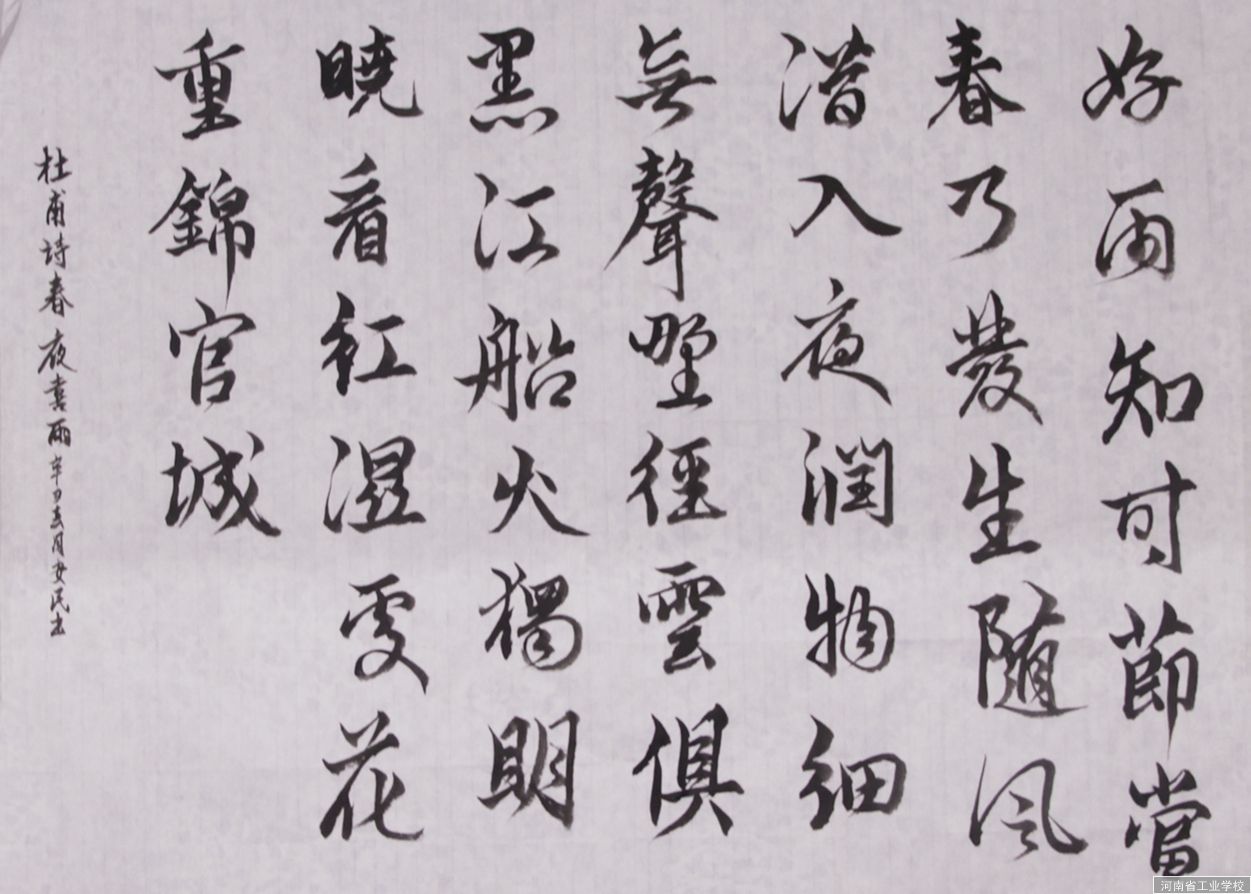 好雨知时節當
春乃發生随風
潛入夜潤物細
無聲野徑雲俱
黑江船火獨明
曉看紅濕處花
重錦官城
杜甫诗春夜喜雨辛丑
河南省工业学校